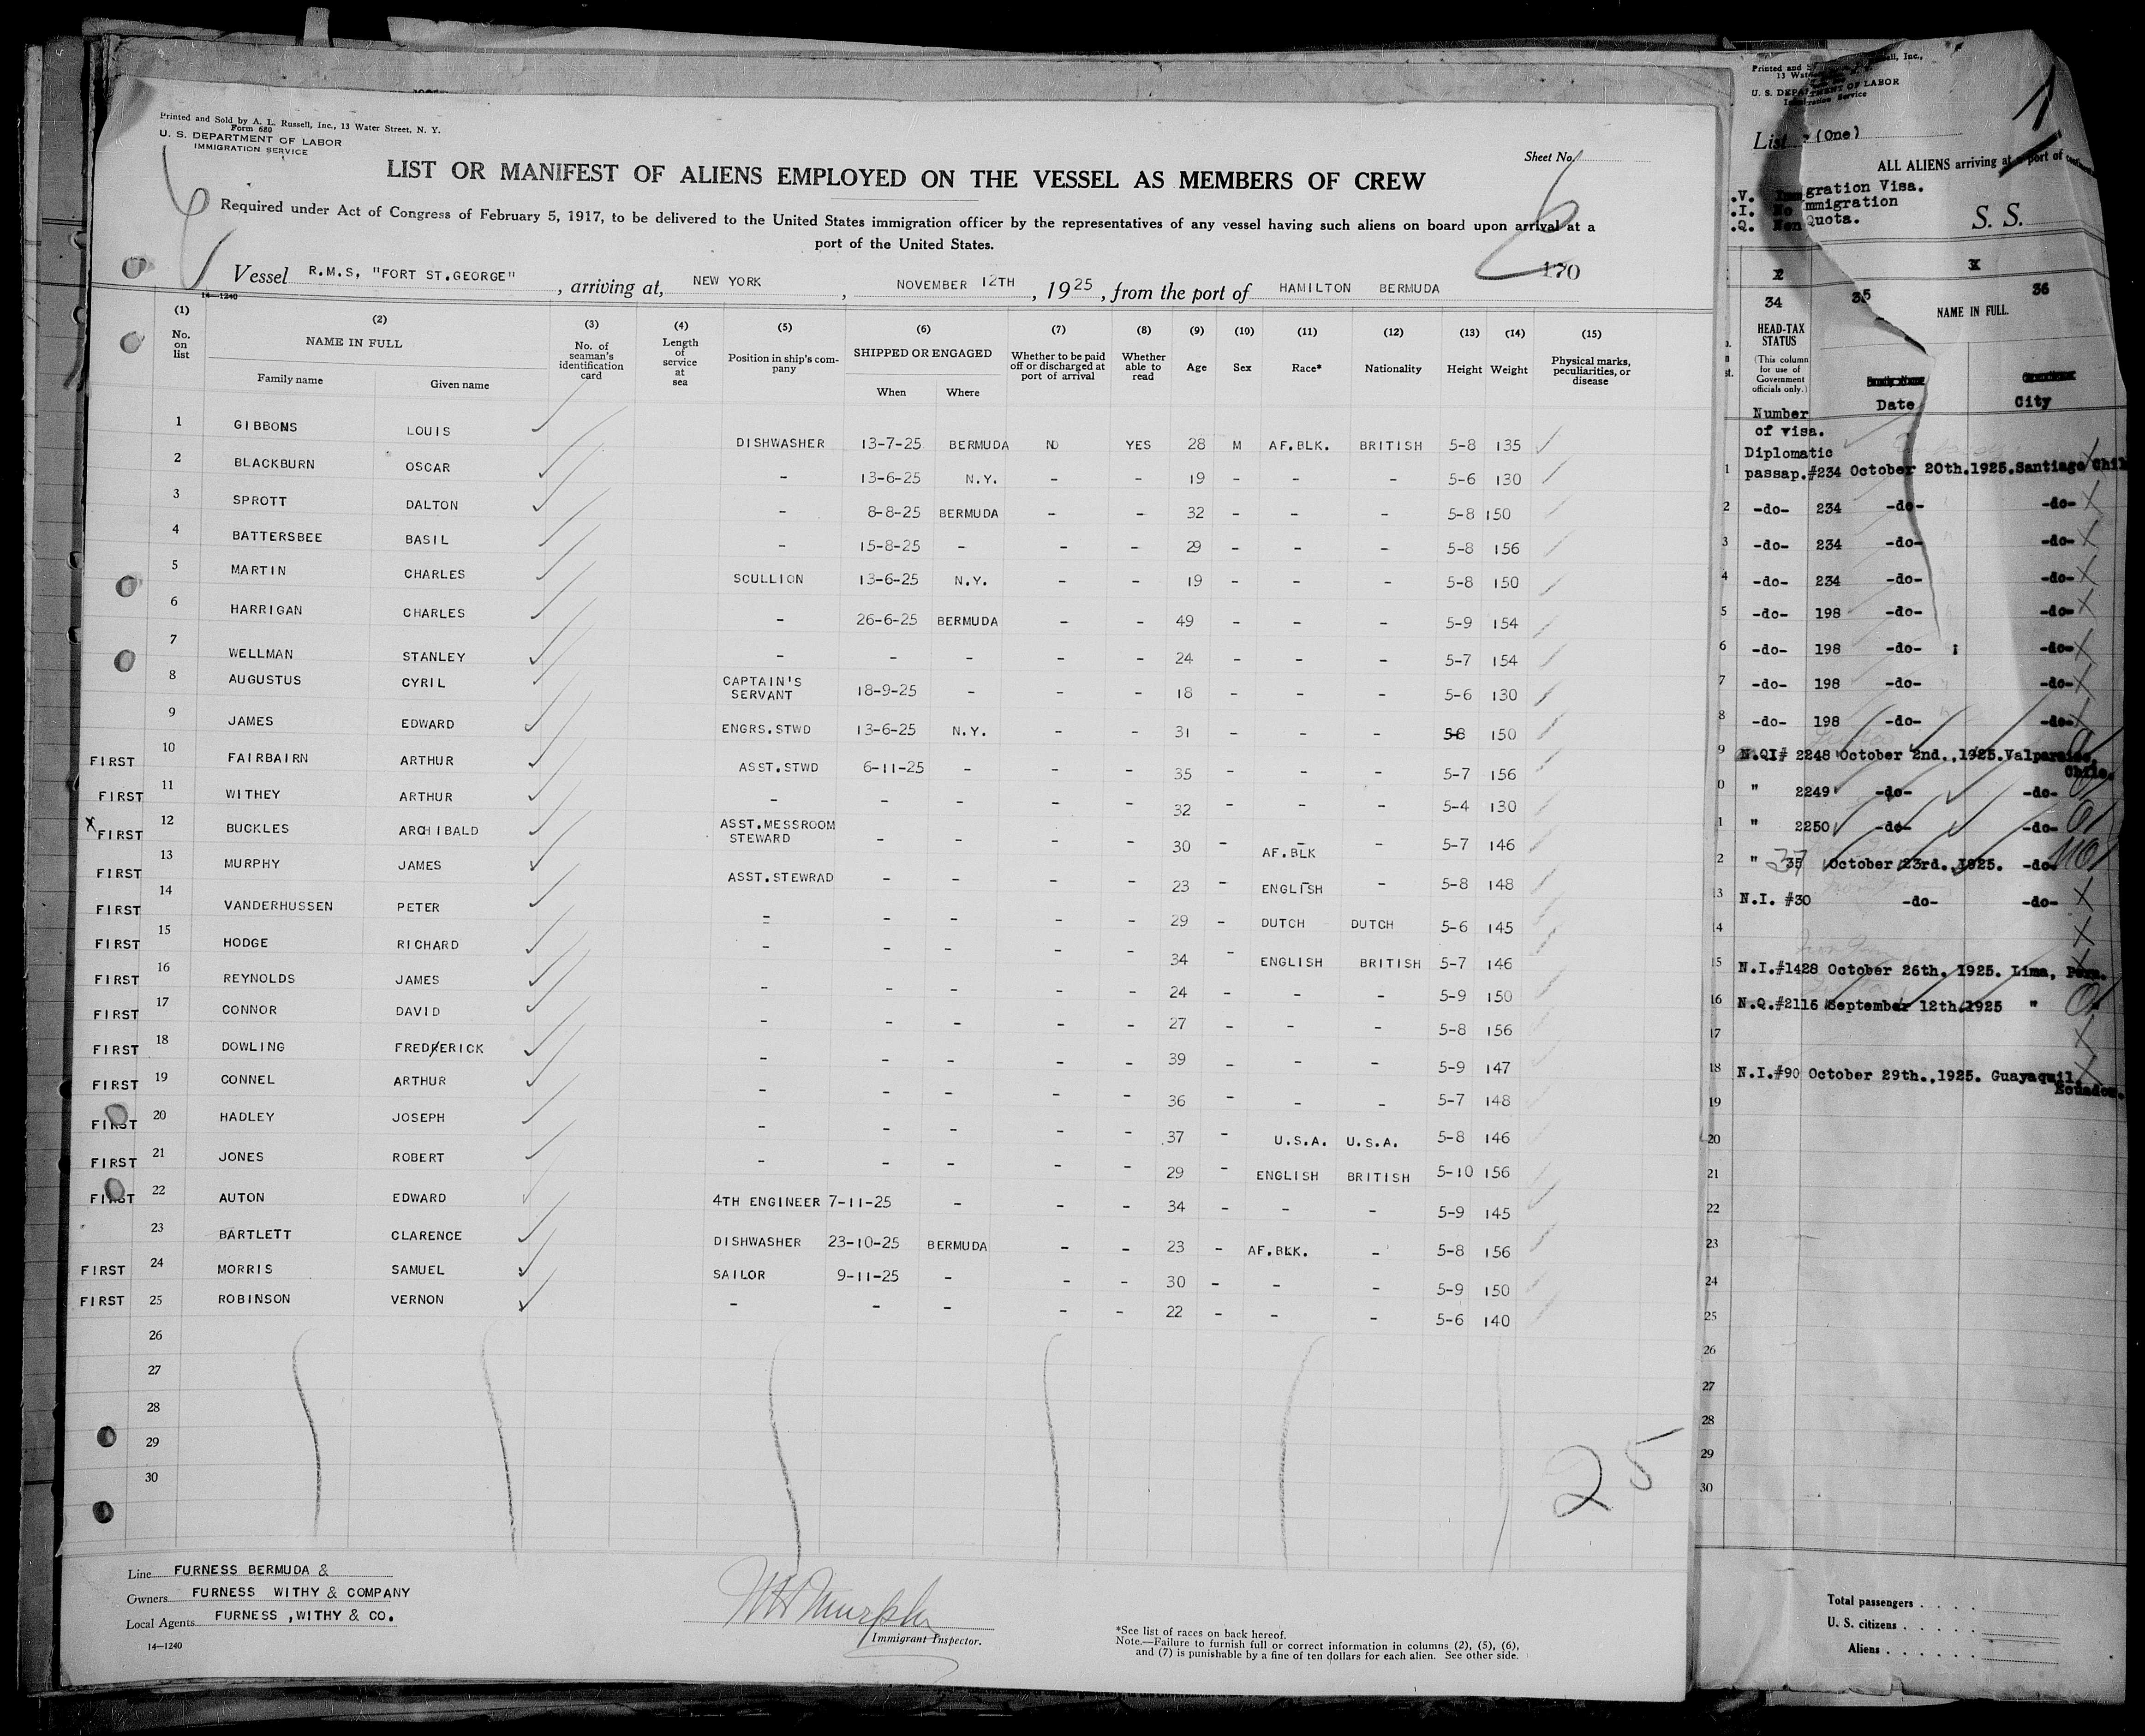 Printed and Sold by A. L. Russell, Inc., 13 Water Street, N. Y.
Form 680
U. S. DEPARTMENT OF LABOR
IMMIGRATION SERVICE
Sheet No. 6
LIST OR MANIFEST OF ALIENS EMPLOYED ON THE VESSEL AS MEMBERS OF CREW
Required under Act of Congress of February 5, 1917, to be delivered to the United States immigration officer by the representatives of any vessel having such aliens on board upon arrival at a
port of the United States.
170
Vessel R.M.S, "FORT ST.GEORGE" , arriving at, NEW YORK , NOVEMBER 12TH , 1925 , from the port of HAMILTON BERMUDA
14—1240
(1) (2) (3) (4) (5) (6) (7) (8) (9) (10) (11) (12) (13) (14) (15)
No. on list NAME IN FULL Family name Given name No. of seaman's identification card Length of service at sea Position in ship's company SHIPPED OR ENGAGED When Where Whether to be paid off or discharged at port of arrival Whether able to read Age Sex Race* Nationality Height Weight Physical marks, peculiarities, or disease
1 GIBBONS LOUIS DISHWASHER 13-7-25 BERMUDA NO YES 28 M AF.BLK. BRITISH 5-8 135
2 BLACKBURN OSCAR - 13-6-25 N.Y. - - 19 - - - 5-6 130
3 SPROTT DALTON - 8-8-25 BERMUDA - - 32 - - - 5-8 150
4 BATTERSBEE BASIL - 15-8-25 - - - 29 - - - 5-8 156
5 MARTIN CHARLES SCULLION 13-6-25 N.Y. - - 19 - - - 5-8 150
6 HARRIGAN CHARLES - 26-6-25 BERMUDA - - 49 - - - 5-9 154
7 WELLMAN STANLEY - - - - - 24 - - - 5-7 154
8 AUGUSTUS CYRIL CAPTAIN'S SERVANT 18-9-25 - - - 18 - - - 5-6 130
9 JAMES EDWARD ENGRS.STWD 13-6-25 N.Y. - - 31 - - - 5-8 150
FIRST 10 FAIRBAIRN ARTHUR ASST.STWD 6-11-25 - - - 35 - - - 5-7 156
FIRST 11 WITHEY ARTHUR - - - - - 32 - - - 5-4 130
X FIRST 12 BUCKLES ARCHIBALD ASST.MESSROOM STEWARD - - - - 30 - AF.BLK - 5-7 146
FIRST 13 MURPHY JAMES ASST.STEWRAD - - - - 23 - ENGLISH - 5-8 148
FIRST 14 VANDERHUSSEN PETER - - - - - 29 - DUTCH DUTCH 5-6 145
FIRST 15 HODGE RICHARD - - - - - 34 - ENGLISH BRITISH 5-7 146
FIRST 16 REYNOLDS JAMES - - - - - 24 - - - 5-9 150
FIRST 17 CONNOR DAVID - - - - - 27 - - - 5-8 156
FIRST 18 DOWLING FREDERICK - - - - - 39 - - - 5-9 147
FIRST 19 CONNEL ARTHUR - - - - - 36 - - - 5-7 148
FIRST 20 HADLEY JOSEPH - - - - - 37 - U.S.A. U.S.A. 5-8 146
FIRST 21 JONES ROBERT - - - - - 29 - ENGLISH BRITISH 5-10 156
FIRST 22 AUTON EDWARD 4TH ENGINEER 7-11-25 - - - 34 - - - 5-9 145
23 BARTLETT CLARENCE DISHWASHER 23-10-25 BERMUDA - - 23 - AF.BLK. - 5-8 156
FIRST 24 MORRIS SAMUEL SAILOR 9-11-25 - - - 30 - - - 5-9 150
FIRST 25 ROBINSON VERNON - - - - - 22 - - - 5-6 140
26
27
28
29
30
25
Line FURNESS BERMUDA &
Owners FURNESS WITHY & COMPANY
Local Agents FURNESS ,WITHY & CO.
14—1240
Immigrant Inspector.
*See list of races on back hereof.
Note.—Failure to furnish full or correct information in columns (2), (5), (6),
and (7) is punishable by a fine of ten dollars for each alien. See other side.
Printed and
U. S. DEPARTMENT OF LABOR
Immigration Service
1
List (One)
ALL ALIENS arriving at a port of
Immigration Visa.
Immigration
Non Quota.
S. S.
34 35 36
HEAD-TAX STATUS
(This column for use of Government officials only.)
NAME IN FULL.
Date City
Number
of visa.
Diplomatic
1 passap.#234 October 20th.1925.Santiago Chil
2 -do- 234 -do- -do-
3 -do- 234 -do- -do-
4 -do- 234 -do- -do-
5 -do- 198 -do- -do-
6 -do- 198 -do- -do-
7 -do- 198 -do- -do-
8 -do- 198 -do- -do-
9 N.QI# 2248 October 2nd.,1925.Valparaiso,
Chile.
0 " 2249 -do- -do-
1 " 2250 -do- -do-
2 " 35 October 23rd.,1925. -do-
13 N.I. #30 -do- -do-
14
15 N.I.#1428 October 26th. 1925. Lima, Peru.
16 N.Q.#2116 September 12th.1925 "
17
18 N.I.#90 October 29th.,1925. Guayaquil,
Ecuador.
19
20
21
22
23
24
25
26
27
28
29
30
Total passengers
U. S. citizens
Aliens